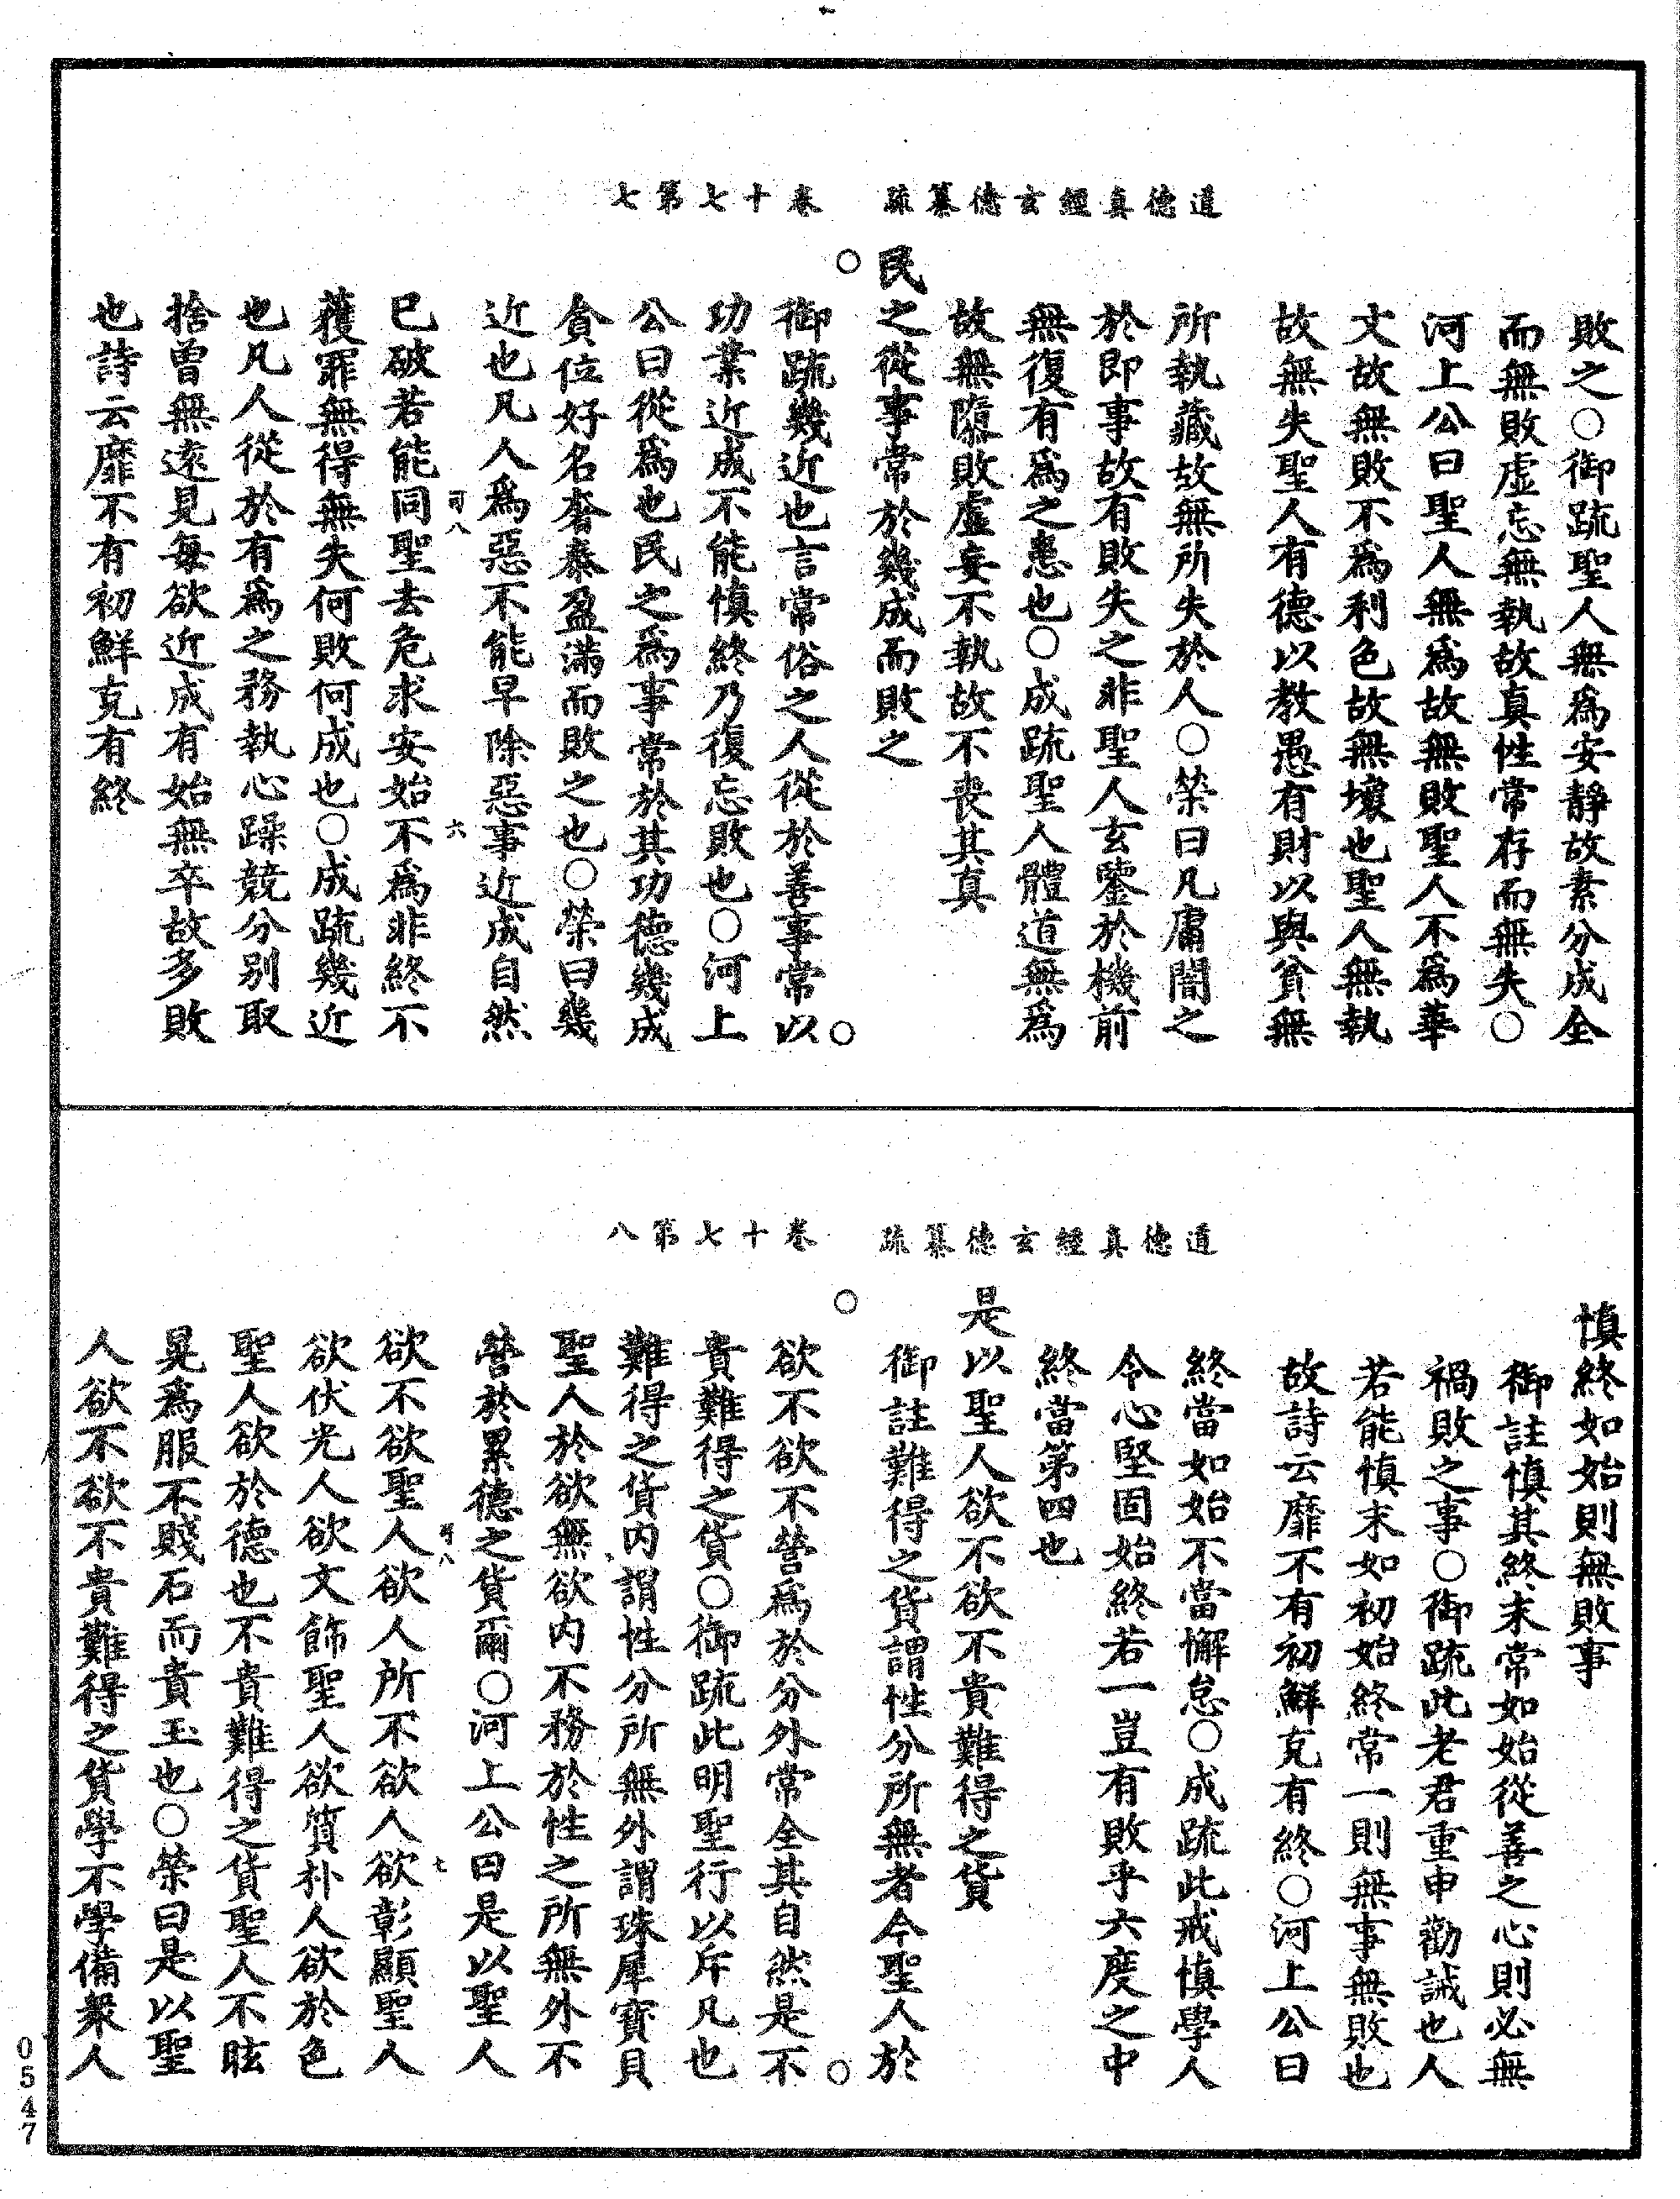 道德真經玄德纂疏　卷十七第七
敗之○御疏聖人無爲安靜故素分成全
而無敗虛忘無執故真性常存而無失○
河上公曰聖人無爲故無敗聖人不爲華
文故無敗不爲利色故無壞也聖人無執
故無失聖人有德以教愚有財以與貧無
所執藏故無所失於人○榮曰凡庸闇之
於即事故有敗失之非聖人玄鑒於機前
無復有爲之患也○成疏聖人體道無爲
故無隳敗虛妄不執故不喪其真
民之從事常於幾成而敗之
○
○
御疏幾近也言常俗之人從於善事常以
功業近成不能慎終乃復忘敗也○河上
公曰從爲也民之爲事常於其功德幾成
貪位好名奢泰盈滿而敗之也○榮曰幾
近也凡人爲惡不能早除惡事近成自然
可八　六
已破若能同聖去危求安始不爲非終不
獲罪無得無失何敗何成也○成疏幾近
也凡人從於有爲之務執心躁競分别取
捨曾無遠見每欲近成有始無卒故多敗
也詩云靡不有初鮮克有終
道德真經玄德纂疏　卷十七第八
慎終如始則無敗事
御註慎其終末常如始從善之心則必無
禍敗之事○御疏此老君重申勸誡也人
若能慎末如初始終常一則無事無敗也
故詩云靡不有初鮮克有終○河上公曰
終當如始不當懈怠○成疏此戒慎學人
令心堅固始終若一豈有敗乎六度之中
終當第四也
是以聖人欲不欲不貴難得之貨
御註難得之貨謂性分所無者今聖人於
○
○
欲不欲不營爲於分外常全其自然是不
貴難得之貨○御疏此明聖行以斥凡也
難得之貨内謂性分所無外謂珠犀寶貝
聖人於欲無欲内不務於性之所無外不
營於累德之貨爾○河上公曰是以聖人
可八　七
欲不欲聖人欲人所不欲人欲彰顯聖人
欲伏光人欲文飾聖人欲質朴人欲於色
聖人欲於德也不貴難得之貨聖人不眩
晃爲服不賤石而貴玉也○榮曰是以聖
人欲不欲不貴難得之貨學不學備衆人
0547